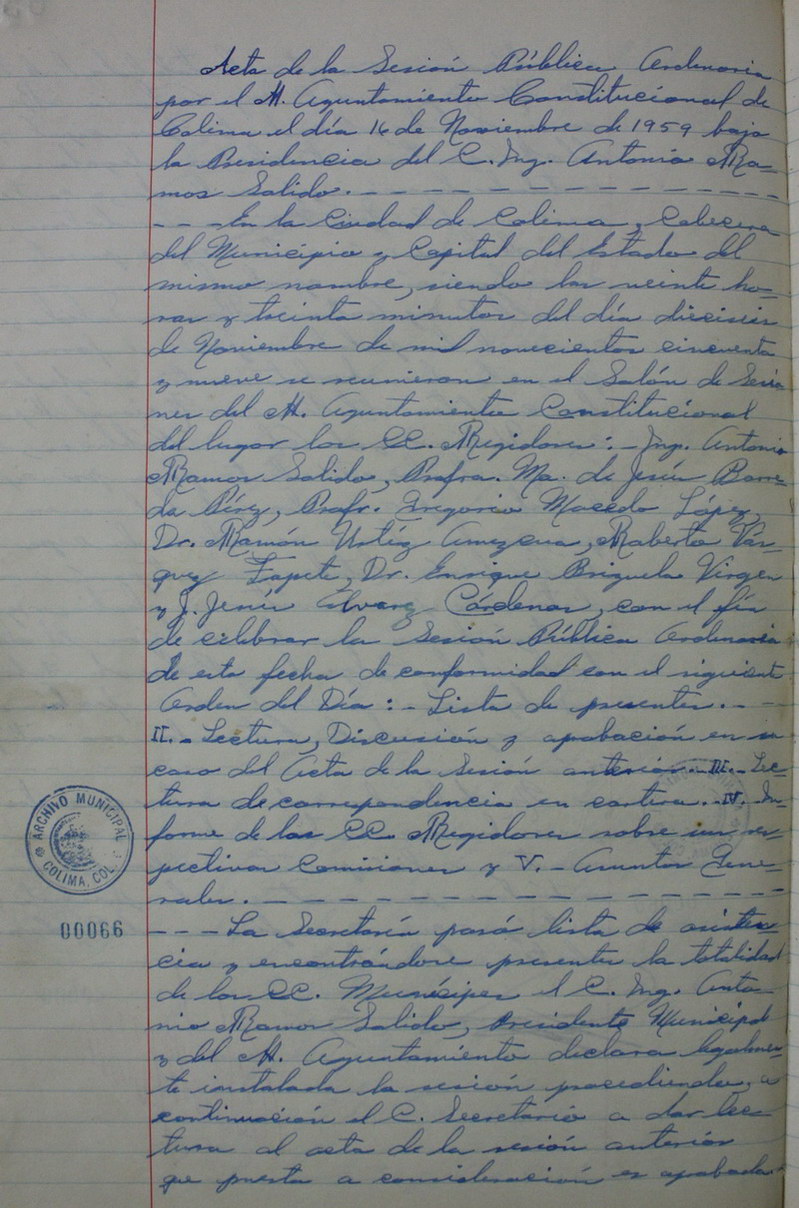 Acta de la Sesión Pública Ordinaria
por el H. Ayuntamiento Constitucional de
Colima el día 16 de Noviembre de 1959 bajo
la Presidencia del C. Ing. Antonio Ra-
mos Salido. - - - - - - - - - - - - - -
- - - En la Ciudad de Colima, Cabecera
del Municipio y Capital del Estado del
mismo nombre, siendo las veinte ho-
ras y treinta minutos del día dieciseis
de Noviembre de mil novecientos cincuenta
y nueve se reunieron en el Salón de Sesio
nes del H. Ayuntamiento Constitucional
del lugar los CC. Regidores:- Ing. Antonio
Ramos Salido, Profra. Ma. de Jesús Barre-
da Pérez, Profr. Gregorio Macedo López,
Dr. Ramón Ustiz Amezcua, Roberto Váz-
quez Zapete, Dr. Enrique Brizuela Virgen
y J. Jesús Alvarez Cárdenas, con el fín
de celebrar la Sesión Pública Ordinaria
de esta fecha de conformidad con el siguiente
Orden del Día:- Lista de presentes. - -
II.- Lectura, Discusión y aprobación en su
caso del Acta de la Sesión anterior.- III.- Lec-
tura de correspondencia en cartera.- IV.- In
forme de los CC. Regidores sobre sus res
pectivas Comisiones y V.- Asuntos Gene-
rales. - - - - - - - - - - - - - - - -
- - - La Secretaría pasó lista de asisten
cia y encontrándose presentes la totalidad
de los CC. Munícipes el C. Ing. Anto-
nio Ramos Salido, Presidente Municipal
y del H. Ayuntamiento declara legalmen-
te instalada la sesión procediendo, a
continuación el C. Secretario a dar lec-
tura al acta de la sesión anterior
que puesta a consideración es aprobada
ARCHIVO MUNICIPAL
COLIMA, COL.
00066